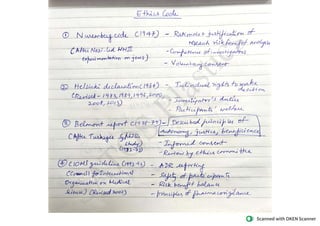 Ethics Code
① Nuremberg code (1947) - Rationale & justification of
research risk benefit analysis
(After Nazi-led WWII - Competence of investigators
experimentation on jews) - Voluntary consent
② Helsinki declaration (1964) - Individual rights to make
(Revised - 1983, 1989, 1996, 2000, decision
2008, 2013) - Investigator's duties
Participants' welfare
③ Belmont report (1978-79) - Described principles of
autonomy, justice, beneficence
(After Tuskegee syphilis
study) - Informed consent
- Review by ethics committee
④ CIOMS guideline - ADR reporting
(Council for International - Safety of participants
Organisation on Medical - Risk benefit balance
Science) (Revised 2002) - principles of pharmacovigilance
Scanned with OKEN Scanner